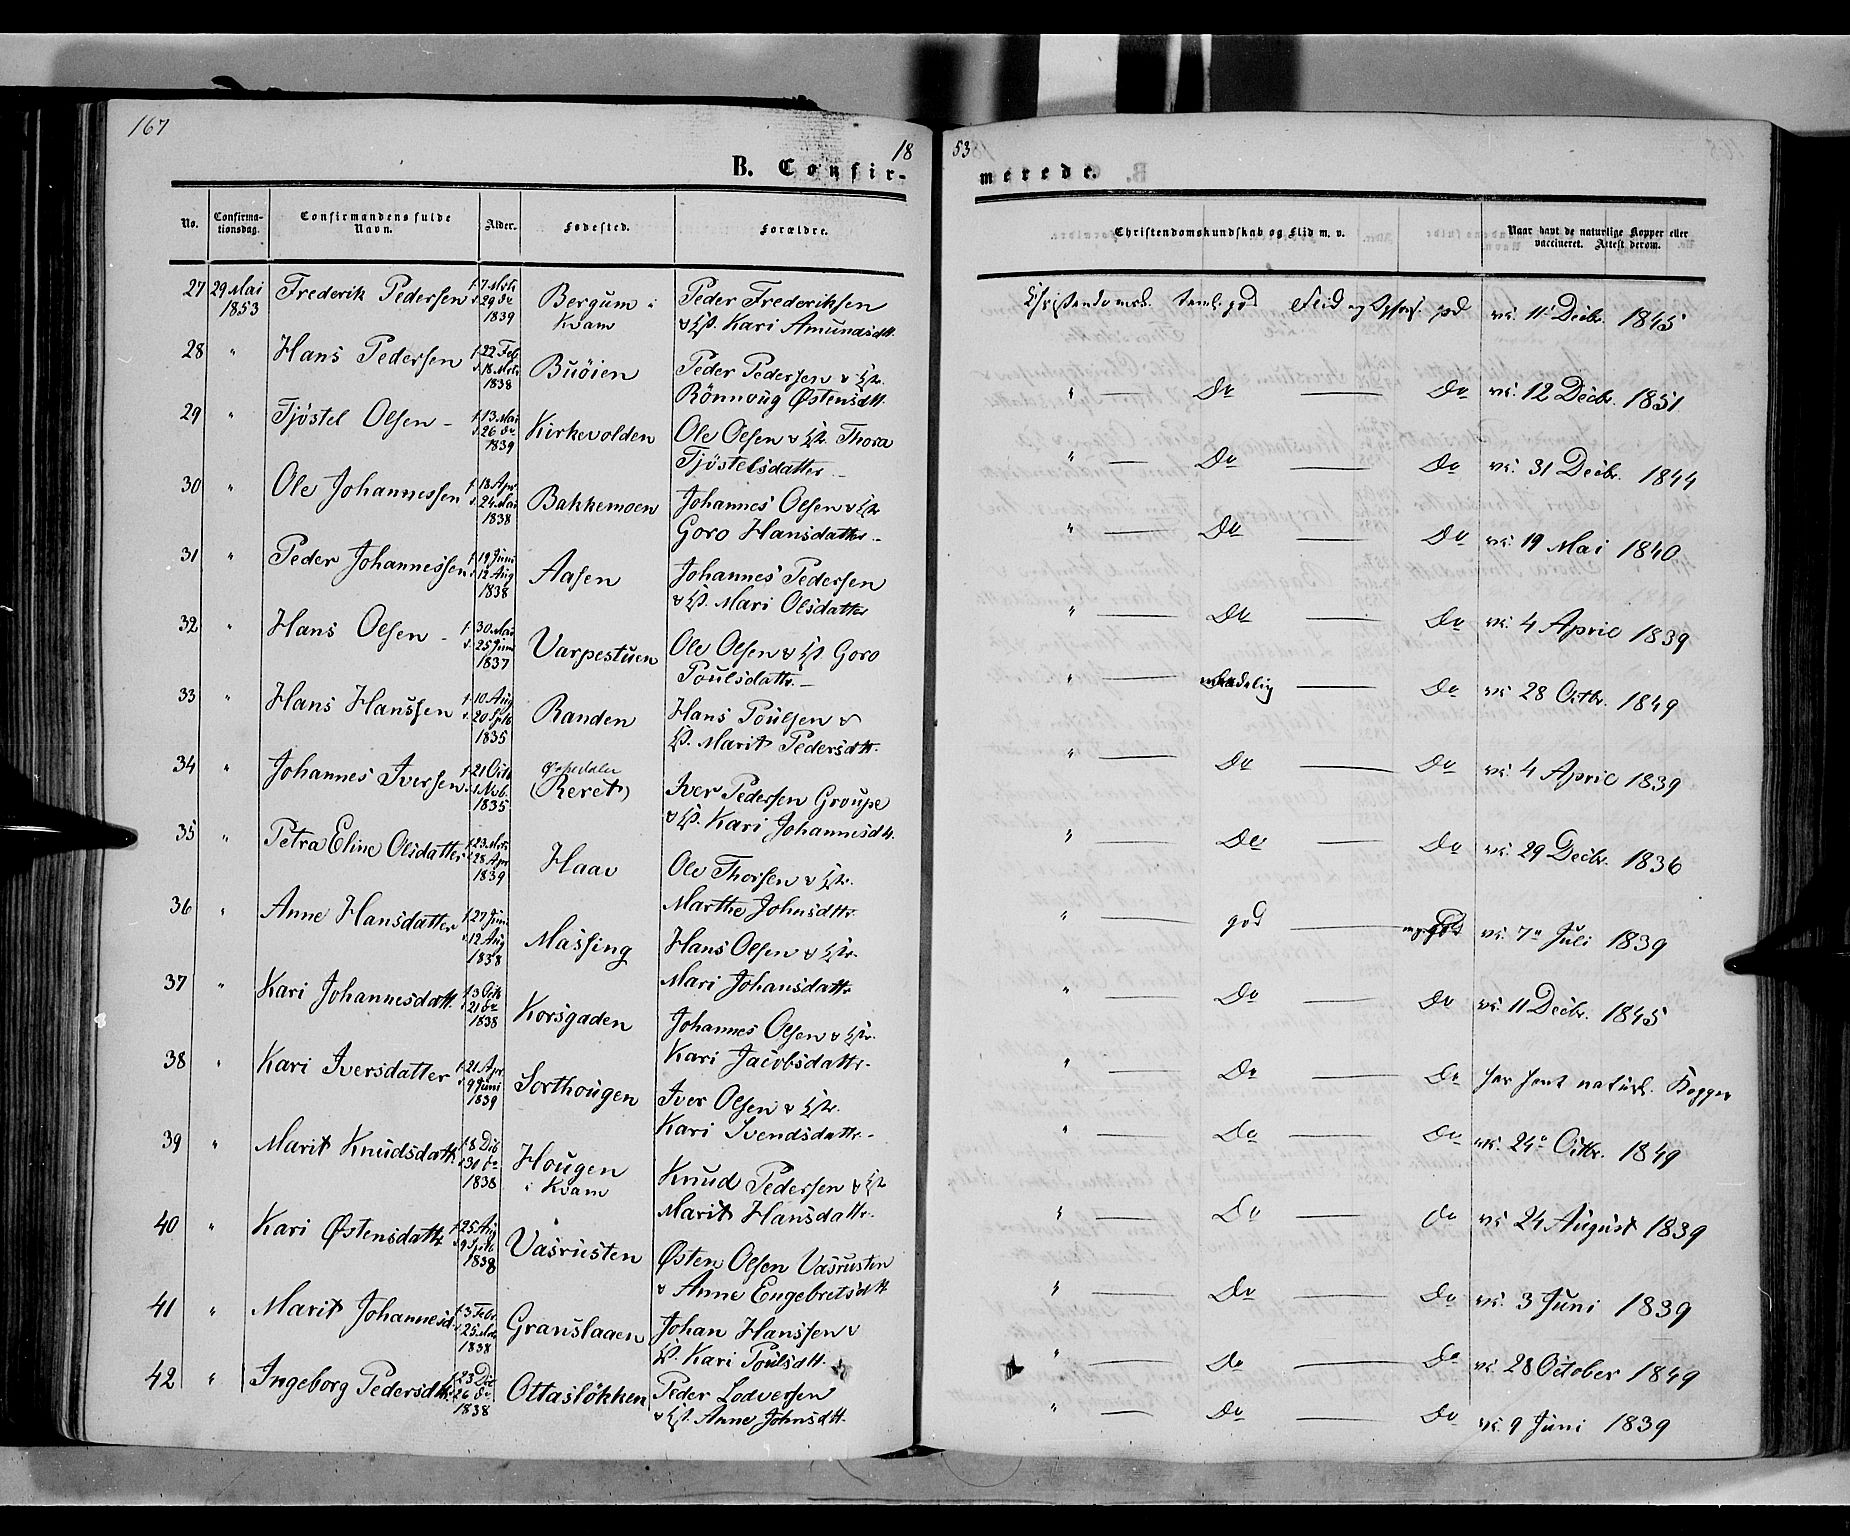 167
18
53
B. Confir-
merede.
No.
Confirma-
tionsdag.
Confirmandens fulde
Navn.
Alder.
Fødested.
Forældre.
Christendomskundskab og Flid m. v.
Naar havt de naturlige Kopper eller
vaccineret. Attest derom.
27 29 Mai Frederik Pedersen f. 7 Mrts Bergum i Peder Frederiksen
1853 d. 29 do Kvam & H. Kari Amundsdtt.
1839
Christendomsk. Seml. god Flid og Opførs. god vc. 11 Decbr. 1845
28 " Hans Pedersen f. 22 Feb Buöien Peder Pedersen & Hr.
d. 18 Mrts Rönnoug Østensdtt.
1838
" Do Do vc. 12 Decbr. 1851
29 " Tjöstel Olsen - f. 13 Mai Kirkevolden Ole Olsen & H. Thora
d. 26 do Tjöstelsdatter
1839
" Do Do vc. 31 Decbr. 1844
30 " Ole Johannessen f. 18 Apr. Bakkemoen Johannes Olsen & Hr
d. 24 Mai Goro Hansdatter
1838
" Do Do vc. 19 Mai 1840
31 " Peder Johannessen f. 19 Juni Aasen Johannes Pedersen
d. 12 Aug & H. Mari Olsdatter
1838
" Do Do vc. 4 April 1839
32 " Hans Olsen - f. 30 Mai Varpestuen Ole Olsen & H. Goro
d. 25 Juni Poulsdatr.
1837
" maadelig Do vc 28 Octbr. 1849
33 " Hans Hanssen f. 10 Aug Randen Hans Poulsen &
d. 20 Sptb H. Marit Pedersdtr.
1835
" Do Do vc. 4 April 1839
34 " Johannes Iversen f. 21 Octb (Reret) Iver Pedersen Groupe
1 Nvb. & H. Kari Johannesdtt.
1835
" Do Do vc. 29 Decbr. 1836
35 " Petra Eline Olsdatter f. 23 Mrts Haav Ole Thorsen & Hr.
d. 28 Apr Marthe Johnsdttr.
1839
" god god vc. 7 Juli 1839
36 " Anne Hansdatter f. 27 Juni Massing Hans Olsen & Hr.
d. 12 Aug Mari Johansdattr
1838
" Do Do vc. 11 Decbr. 1845
37 " Kari Johannesdatt. f. 3 Octb Korsgaden Johannes Olsen & Hr.
d. 21 do Kari Jacobsdattr.
1838
" Do Do har havt naturl. Kopper
38 " Kari Iversdatter f. 21 Apr. Sorthougen Iver Olsen & Hr.
d. 9 Juni Kari Svendsdattr.
1839
" Do Do vc. 24 Octbr. 1849
39 " Marit Knudsdattr f. 8 Dcb Hougen Knud Pedersen & Hr
d. 31 do i Kvam Marit Hansdattr.
1838
" Do Do vc 24 August 1839
40 " Kari Østensdattr f. 25 Aug Vasrusten Østen Olsen Vasrusten
d. 9 Sptb & Anne Engebretsdtt
1838
" Do Do vc. 3 Juni 1839
41 " Marit Johannesd. f. 3 Febr Granslaaen Johan Hanssen &
d. 25 Mrts H. Kari Poulsdtt.
1838
" Do Do vc 28 October 1849
42 " Ingeborg Pedersdtr f. 23 Dcb Ottaslökken Peder Lodversen
d. 26 do & H. Anne Johnsdtt.
1838
" Do Do vc. 9 Juni 1839